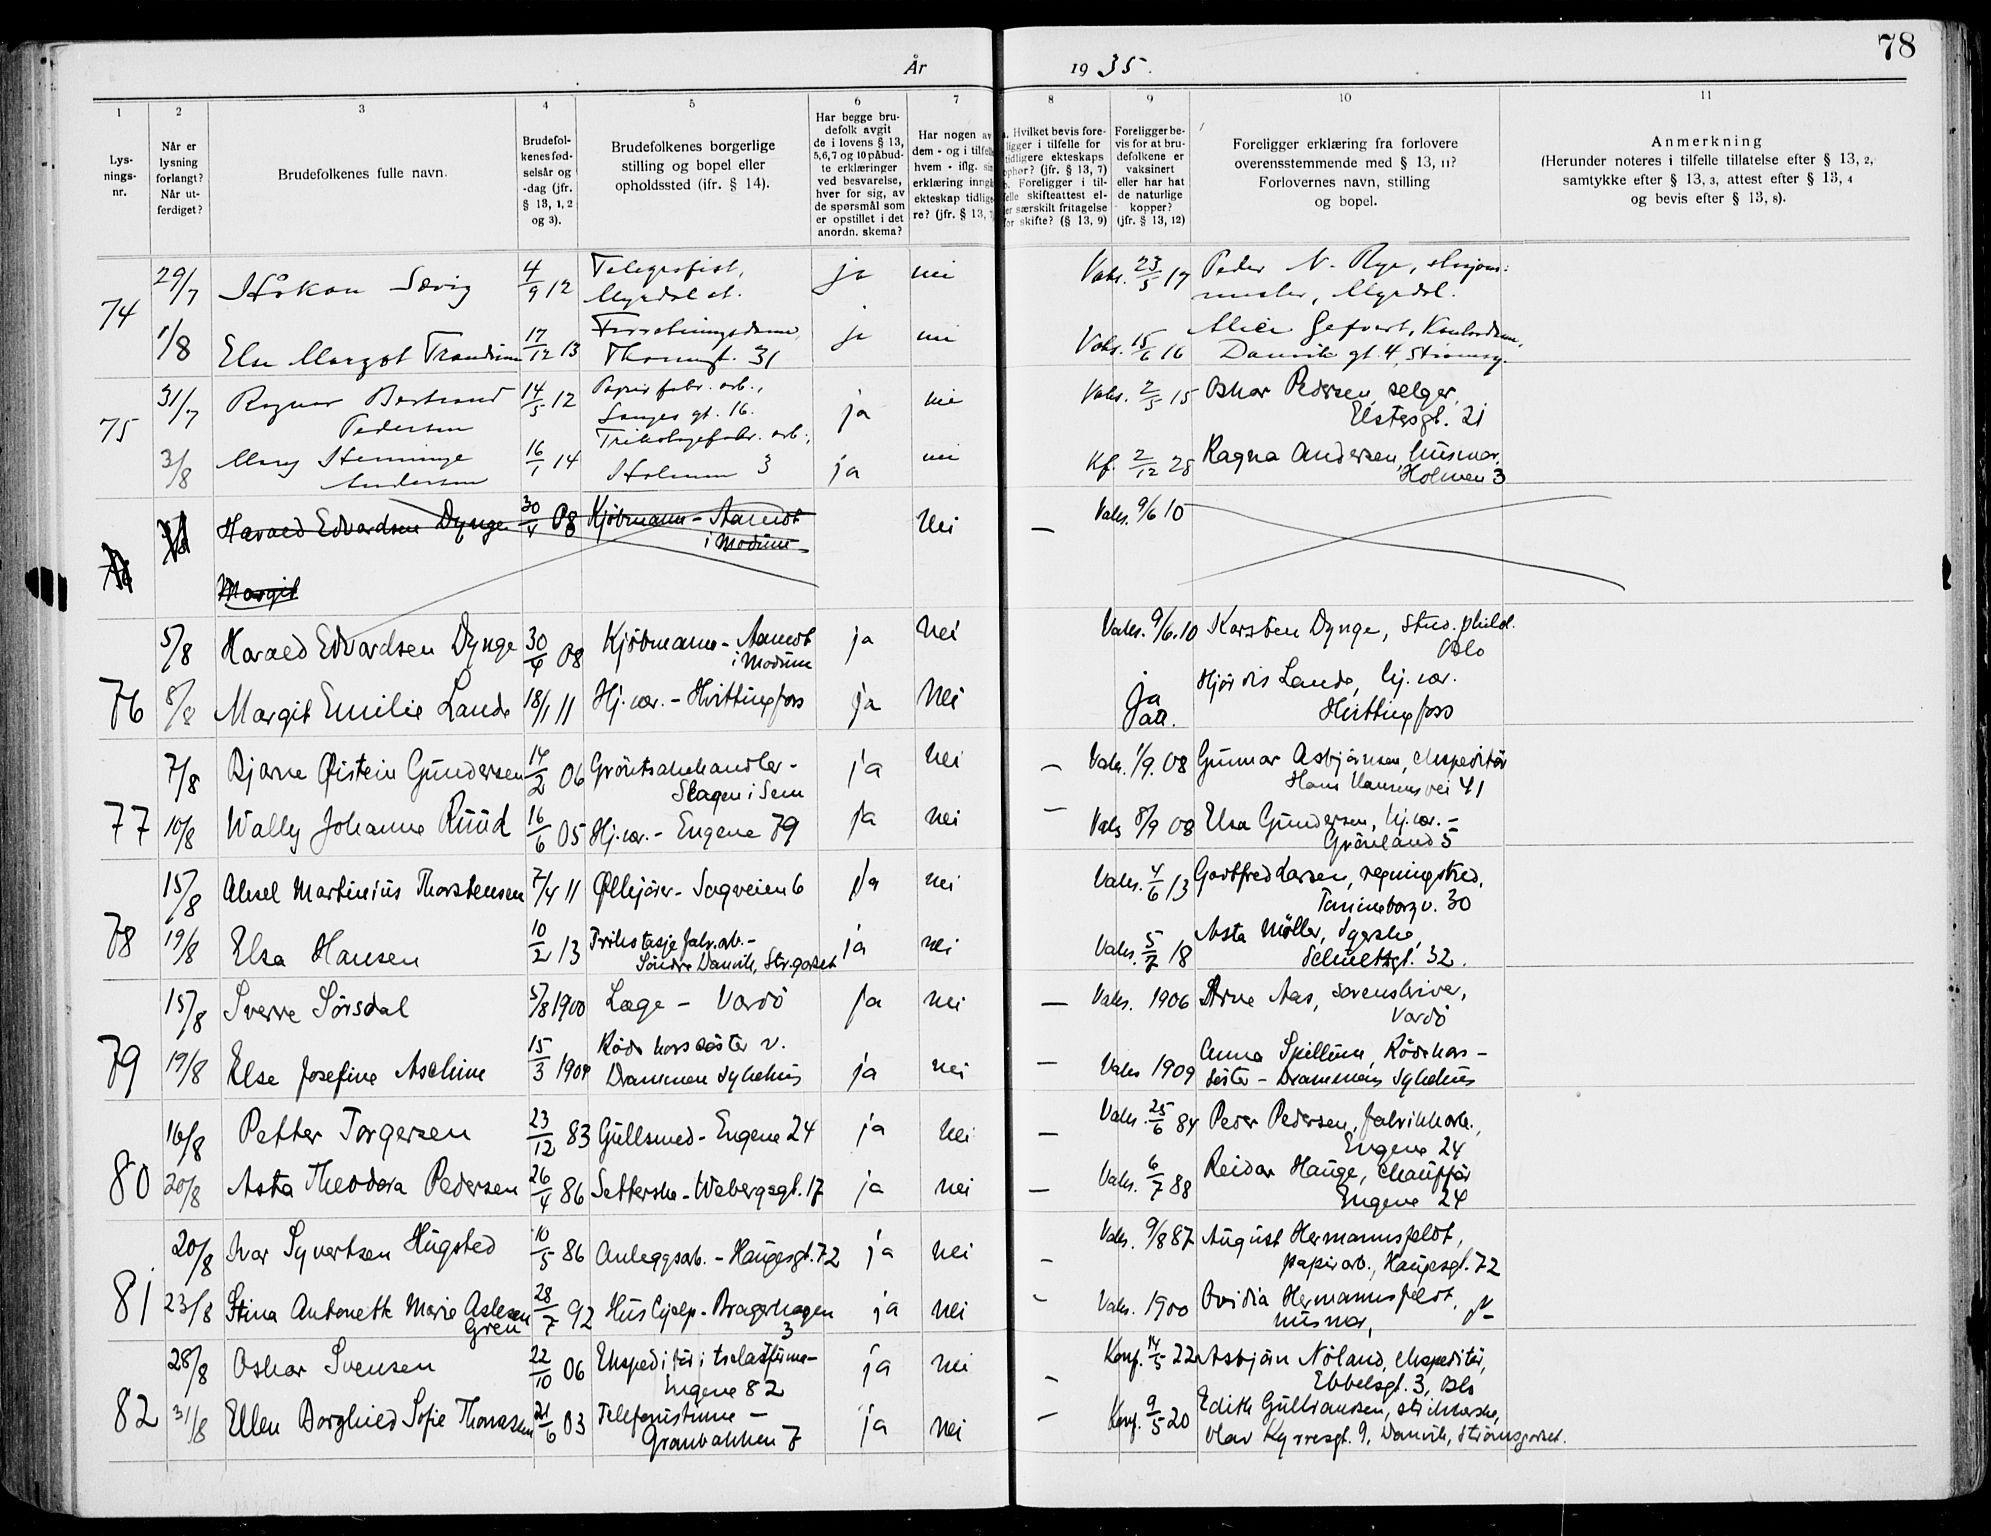 78
År 1935.
1 2 3 4 5 6 7 8 9 10 11
Lys-
nings-
nr.
Når er
lysning
forlangt?
Når ut-
ferdiget?
Brudefolkenes fulle navn.
Brudefol-
kenes fød-
selsår og
-dag (jfr.
§ 13, 1, 2
og 3).
Brudefolkenes borgerlige
stilling og bopel eller
opholdssted (ifr. § 14).
Har begge bru-
defolk avgit
de i lovens § 13,
5,6,7 og 10 påbud-
te erklæringer
ved besvarelse,
hver for sig, av
de spørsmål som
er opstillet i det
anordn. skema?
Har nogen av
dem - og i tilfelle
hvem - iflg. sin
erklæring inngå
ekteskap tidlige
re? (jfr. § 13, 7
a. Hvilket bevis fore-
ligger i tilfelle for
tidligere ekteskaps
ophør? (jfr. § 13, 7)
b. Foreligger i til-
felle skifteattest el-
ler særskilt fritagelse
for skifte? (§ 13, 9)
Foreligger be-
vis for at bru-
defolkene er
vaksinert
eller har hat
de naturlige
kopper?
(jfr. § 13, 12)
Foreligger erklæring fra forlovere
overensstemmende med § 13, 11?
Forlovernes navn, stilling
og bopel.
Anmerkning
(Herunder noteres i tilfelle tillatelse efter § 13, 2,
samtykke efter § 13, 3, attest efter § 13, 4
og bevis efter § 13, 8).
74 29/7 Håkon Sævig 4/9 12 Telegrafist, Myrdal st. ja nei Vaks. 23/5 17 Peder N. Rye, stasjons-
mester, Myrdal.
1/8 Else Margot Trandum 17/12 13 Thornegt. 31 ja nei Vaks. 15/6 16 Alice Gefvert, Kontordame,
Danvik gt. 4, Strømsg.
75 31/7 Ragnar Bertrand Pedersen 14/5 12 Papirfabr. arb., Langes gt. 16. ja nei Vaks. 2/5 15 Oskar Pedersen, selger,
Elstersgt. 21
3/8 Mary Henninge Andersen 16/1 14 Trikotagefabr. arb., Holmen 3 ja nei Kf. 2/12 28 Ragna Andersen, husmor,
Holmen 3
Harald Edvardsen Dynge 30/4 08 Kjøbmann - Aamot i Modum nei — Vaks. 9/6 10
Margit
5/8 Harald Edvardsen Dynge 30/4 08 Kjøbmann - Aamot i Modum ja nei Vaks. 9/6. 10 Karsten Dynge, stud. philol.
Oslo
76 8/8 Margit Emilie Lande 18/1 11 Hj. vær. - Hvittingfoss ja nei ja Hjørdis Lande, hj. vær.
Hvittingfoss
7/8 Bjarne Øistein Gundersen 14/2 06 Grøntsakhandler - Skagen i Sem ja nei — Vaks. 1/9. 08 Gunnar Asbjørnsen, ekspeditør
Hans Hansens vei 41
77 10/8 Wally Johanne Ruud 16/6 05 Hj. vær. - Engene 79 ja nei — Vaks 8/9 08 Elsa Gundersen, hj. vær. -
Grønland 5
15/8 Aksel Martinius Thorstensen 7/4 11 Ølkjører - Sagveien 6 ja nei Vaks. 4/6 13 Gottfred Larsen,
Tomineborgv. 30
78 19/8 Elsa Hansen 10/2 13 Trikotasje fabr. arb. - Søndre Danvik, Str.godset ja nei Vaks. 5/7 18 Asta Møller, syerske,
Schultzgt. 32.
15/8 Sverre Sørsdal 5/8 1900 Læge - Vardø ja nei — Vaks. 1906 Arne Aas, sorenskriver,
Vardø
79 19/8 Else Josefine Aschim 15/3 1909 Røde kors søster v. Drammen sykehus ja nei — Vaks 1909 Anna Spillum, Røde kors -
søster - Drammens sykehus
16/8 Petter Torgersen 23/12 83 Gullsmed - Engene 24 ja nei — Vaks. 25/6 84 Peder Pedersen, fabrikkarb.,
Engene 24
80 20/8 Asta Theodora Pedersen 26/4 86 Setterske - Webergsgt. 17 ja nei — Vaks. 6/7 88 Reidar Hauge, chauffør
Engene 24
20/8 Ivar Syvertsen Hugsted 10/5 86 Anleggsarb. - Haugesgt. 72 ja nei — Vaks. 9/8 87 August Hermannsfeldt,
papirarb., Haugesgt. 72
81 23/8 Stina Antonette Marie Aslesen Gren 28/7 92 Hushjelp - Bragerhagen 3 ja nei - Vaks. 1900 Ovidia Hermannsfeldt,
husmor,
28/8 Oskar Svensen 22/10 06 Ekspeditør i Engene 82 ja nei — Konf. 14/5 22 Asbjørn Nøland, ekspeditør,
Ebbelsgt. 3, Oslo
82 31/8 Ellen Borghild Sofie Thomassen 21/6 03 Telefonistinne - Granbakken 7 ja nei — Konf. 9/5 20 Edith Gulbransen, strikkerske,
Olav Kyrresgt. 9, Danvik, Strømsgodset.